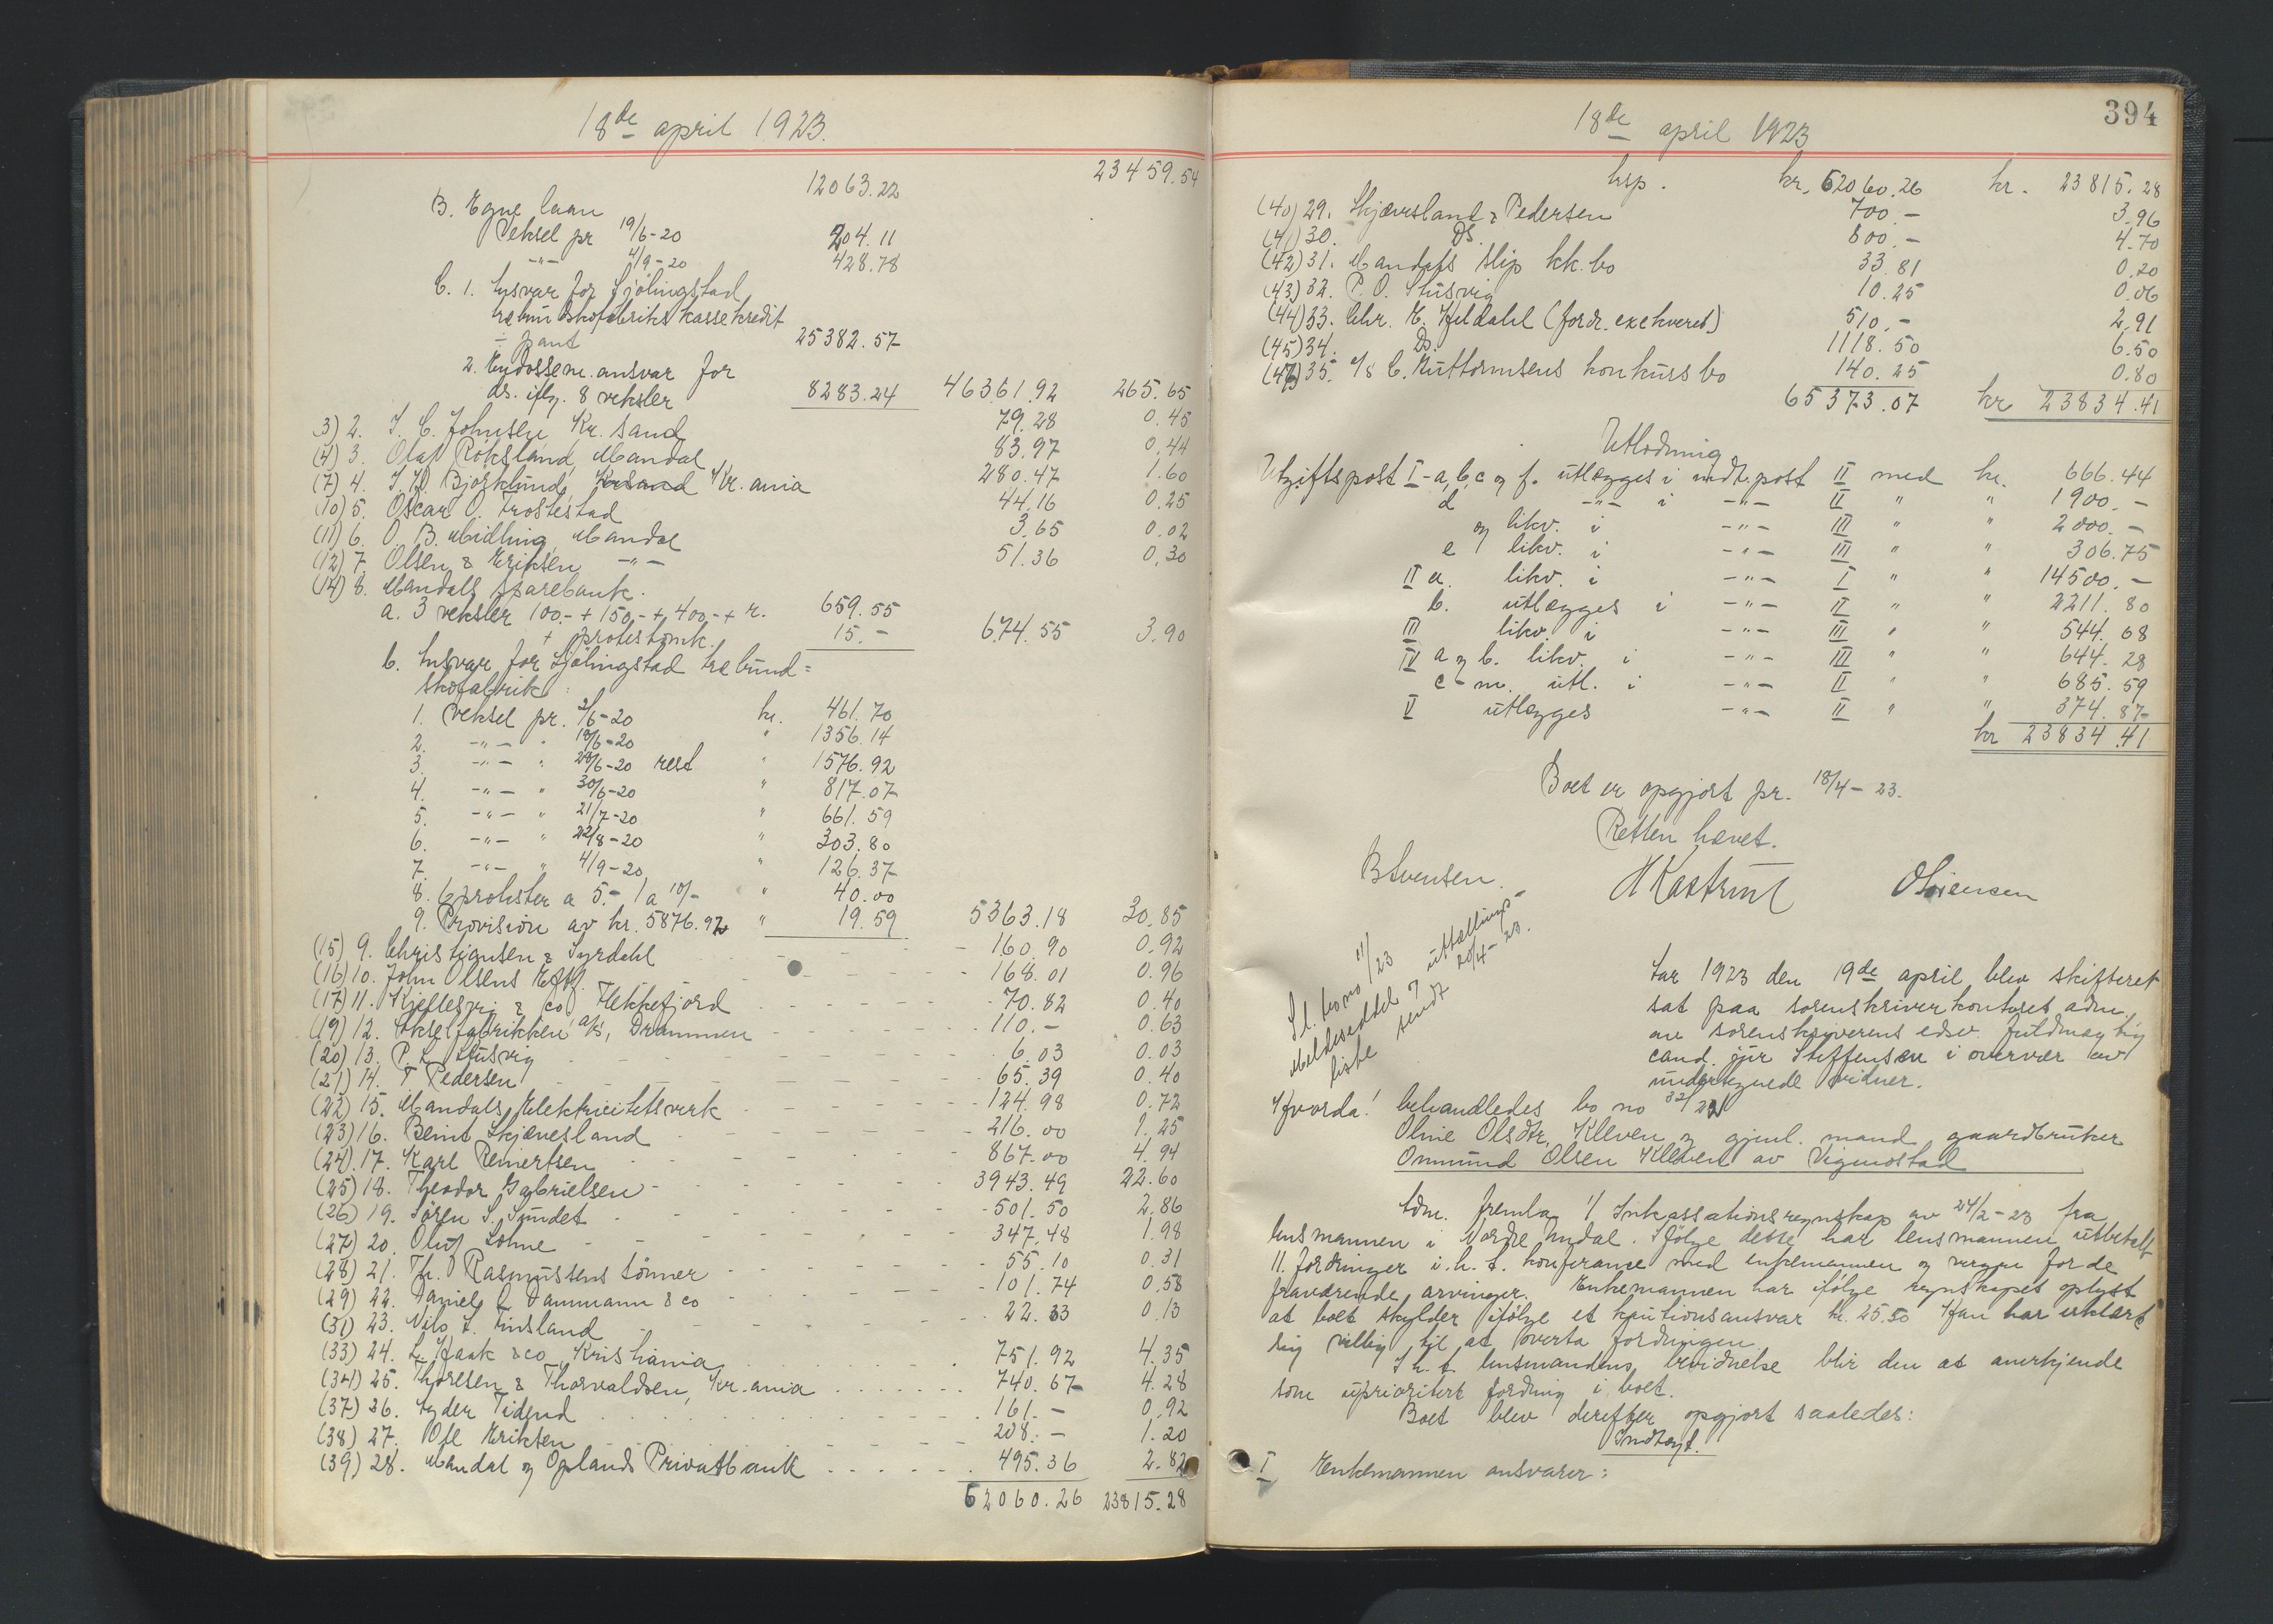 18de april 1923.
12063.22 23459.54
B. Egne laan
Veksel pr 19/6-20 204.11
-"- 4/9-20 428.78
C. 1. Ansvar for Sjölingstad
træbundskofabriks kassekredit
÷ pant 25382.57
2. Endossem. ansvar for
ds. iflg. 8 veksler 8283.24 46361.92 265.65
3) 2. J. C. Johnsen, Kr. sand 79.28 0.45
(4) 3. Olaf Röksland, Mandal 83.97 0.44
(7) 4. J. H. Bjorklund, Krsand Kr. ania 280.47 1.60
(10) 5. Oscar O. Trostestad 44.16 0.25
(11) 6. O. B. Midling Mandal 3.65 0.02
(12) 7. Olsen & Eriksen -"- 51.36 0.30
(14) 8. Mandals sparebank.
a. 3 veksler 100,- + 150,- + 400,- + r. 659.55
+ protestomk. 15.- 674.55 3.90
b. Ansvar for Sjölingstad træbund=
skofabrik:
1. Veksel pr. 2/6-20 kr. 461.70
2. -"- " 18/6-20 " 1356.14
3. -"- " 28/6-20 rest " 1576.92
4. -"- " 30/6-20 " 817.07
5. -"- " 21/7-20 " 661.59
6. -"- " 22/8-20 " 303.80
7. -"- " 4/9-20 " 126.37
8. 6 protester a 5.- 1 a 10/- " 40.00
9. Provision av kr. 5876.92 " 19.59 5363.18 30.85
(15) 9. Christiansen & Syrdahl 160.90 0.92
(16) 10. John Olsens Eftf. 168.01 0.96
(17) 11. Kjellesvig & co, Flekkefjord 70.82 0.40
(19) 12. Akselfabrikken a/s, Drammen 110.- 0.63
(20) 13. P. L. Husvig 6.03 0.03
(21) 14. T Pedersen 65.39 0.40
(22) 15. Mandals Elektricitetsverk 124.98 0.72
(23) 16. Bernt Skjævesland 216.00 1.25
(24) 17. Karl Reinertsen 867.00 4.94
(25) 18. Theodor Gabrielsen 3943.49 22.60
(26) 19. Sören S. Sundet 501.50 2.86
(27) 20. Oluf Lohne 347.48 1.98
(28) 21. Th. Rasmussens Sönner 55.10 0.31
(29) 22. Daniel L. Dammann & co 101.74 0.58
(31) 23. Nils T. Finsland 22.33 0.13
(33) 24. L. Haak & co Kristiania 751.92 4.35
(34) 25. Thoresen & Thorvaldsen, Kr. ania 740.67 4.28
(37) 26. Agder Tidend 161.- 0.92
(38) 27. Ole Eriksen 208.- 1.20
(39) 28. Mandal og Oplands Privatbank 495.36 2.82
62060.26 23815.28
394
18de april 1923
trsp. kr. 62060.26 kr. 23815.28
(40) 29. Skjævsland & Pedersen 700.- 3.96
(41) 30. Ds. 800.- 4.70
(42) 31. Mandals Slip kk. bo 33.81 0.20
(43) 32. P. O. Husvig 10.25 0.06
(44) 33. Chr. E. Heldahl (fordr. exekveret) 510.- 2.91
(45) 34. Ds. 1118.50 6.50
(47) 35. a/s C. Guttormsens konkursbo 140.25 0.80
65373.07 kr 23834.41
Utlodning
Utgiftspost I - a, b, c og f. utlægges i indt. post II med kr. 666.44
d -"- i -"- II " " 1900.-
og likv. i -"- III " " 2000.-
e likv. i -"- III " " 306.75
II a. likv. i -"- I " " 14500.-
b. utlægges i -"- II " " 2211.80
III likv. i -"- III " " 544.68
IV a og b. likv. i -"- III " " 644.28
c-m. utl. i -"- II " " 685.59
V utlægges -"- II " " 374.87
kr 23834.41
Boet er opgjort pr. 18/4-23.
Retten hævet.
B Svensen. H Kastrud O Sörensen
bo no 11/23
Meldeseddel og uttællings-
liste sendt 20/4-23.
Aar 1923 den 19de april blev skifteret
sat paa sorenskriverkontoret adm.
av sorenskriverens edsv. fuldmægtig
cand. jur Steffensen i overvær av
undertegnede vidner.
Hvorda! behandledes bo no 32/22
Oline Olsdtr. Kleven og gjenl. mand gaardbruker
Ommund Olsen Kleven av Vigmostad
Adm. fremla 1/ Inkassationsregnskap av 24/2-23 fra
lensmannen i Nordre Undal. Ifölge dette har lensmannen utbetalt
11. fordringer i. h. t. konferanse med enkemannen og verge for de
fraværende arvinger. Enkemannen har ifölge regnskapet oplyst
at boet skylder ifölge et kautionsansvar kr. 25.50 Han har erklært
sig villig til at overta fordringen.
I h. t. lensmandens bevidnelse blir den at anerkjende
som uprioritert fordring i boet.
Boet blev derefter opgjort saaledes:
Indtægt.
I Enkemannen ansvarer: